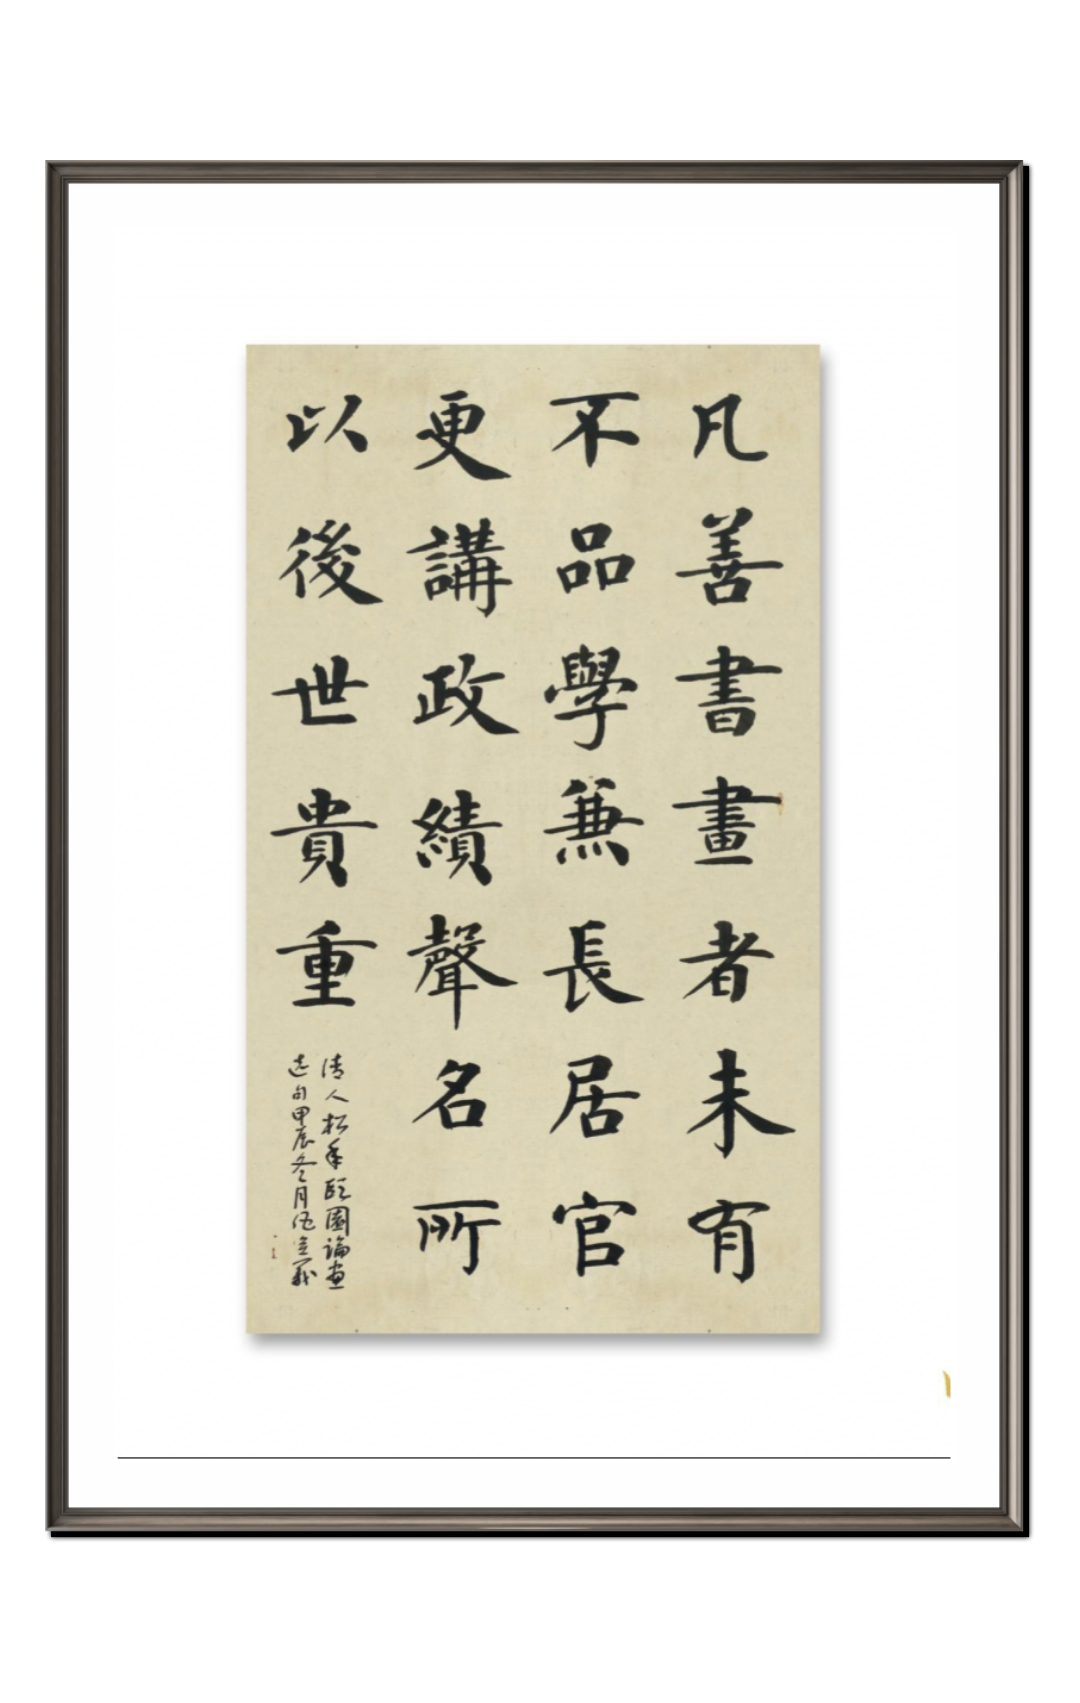 凡善書畫者未有
不品學兼長居官
更講政績聲名所
以後世貴重
清人松年頤園論畫
選句甲辰冬月伍立義